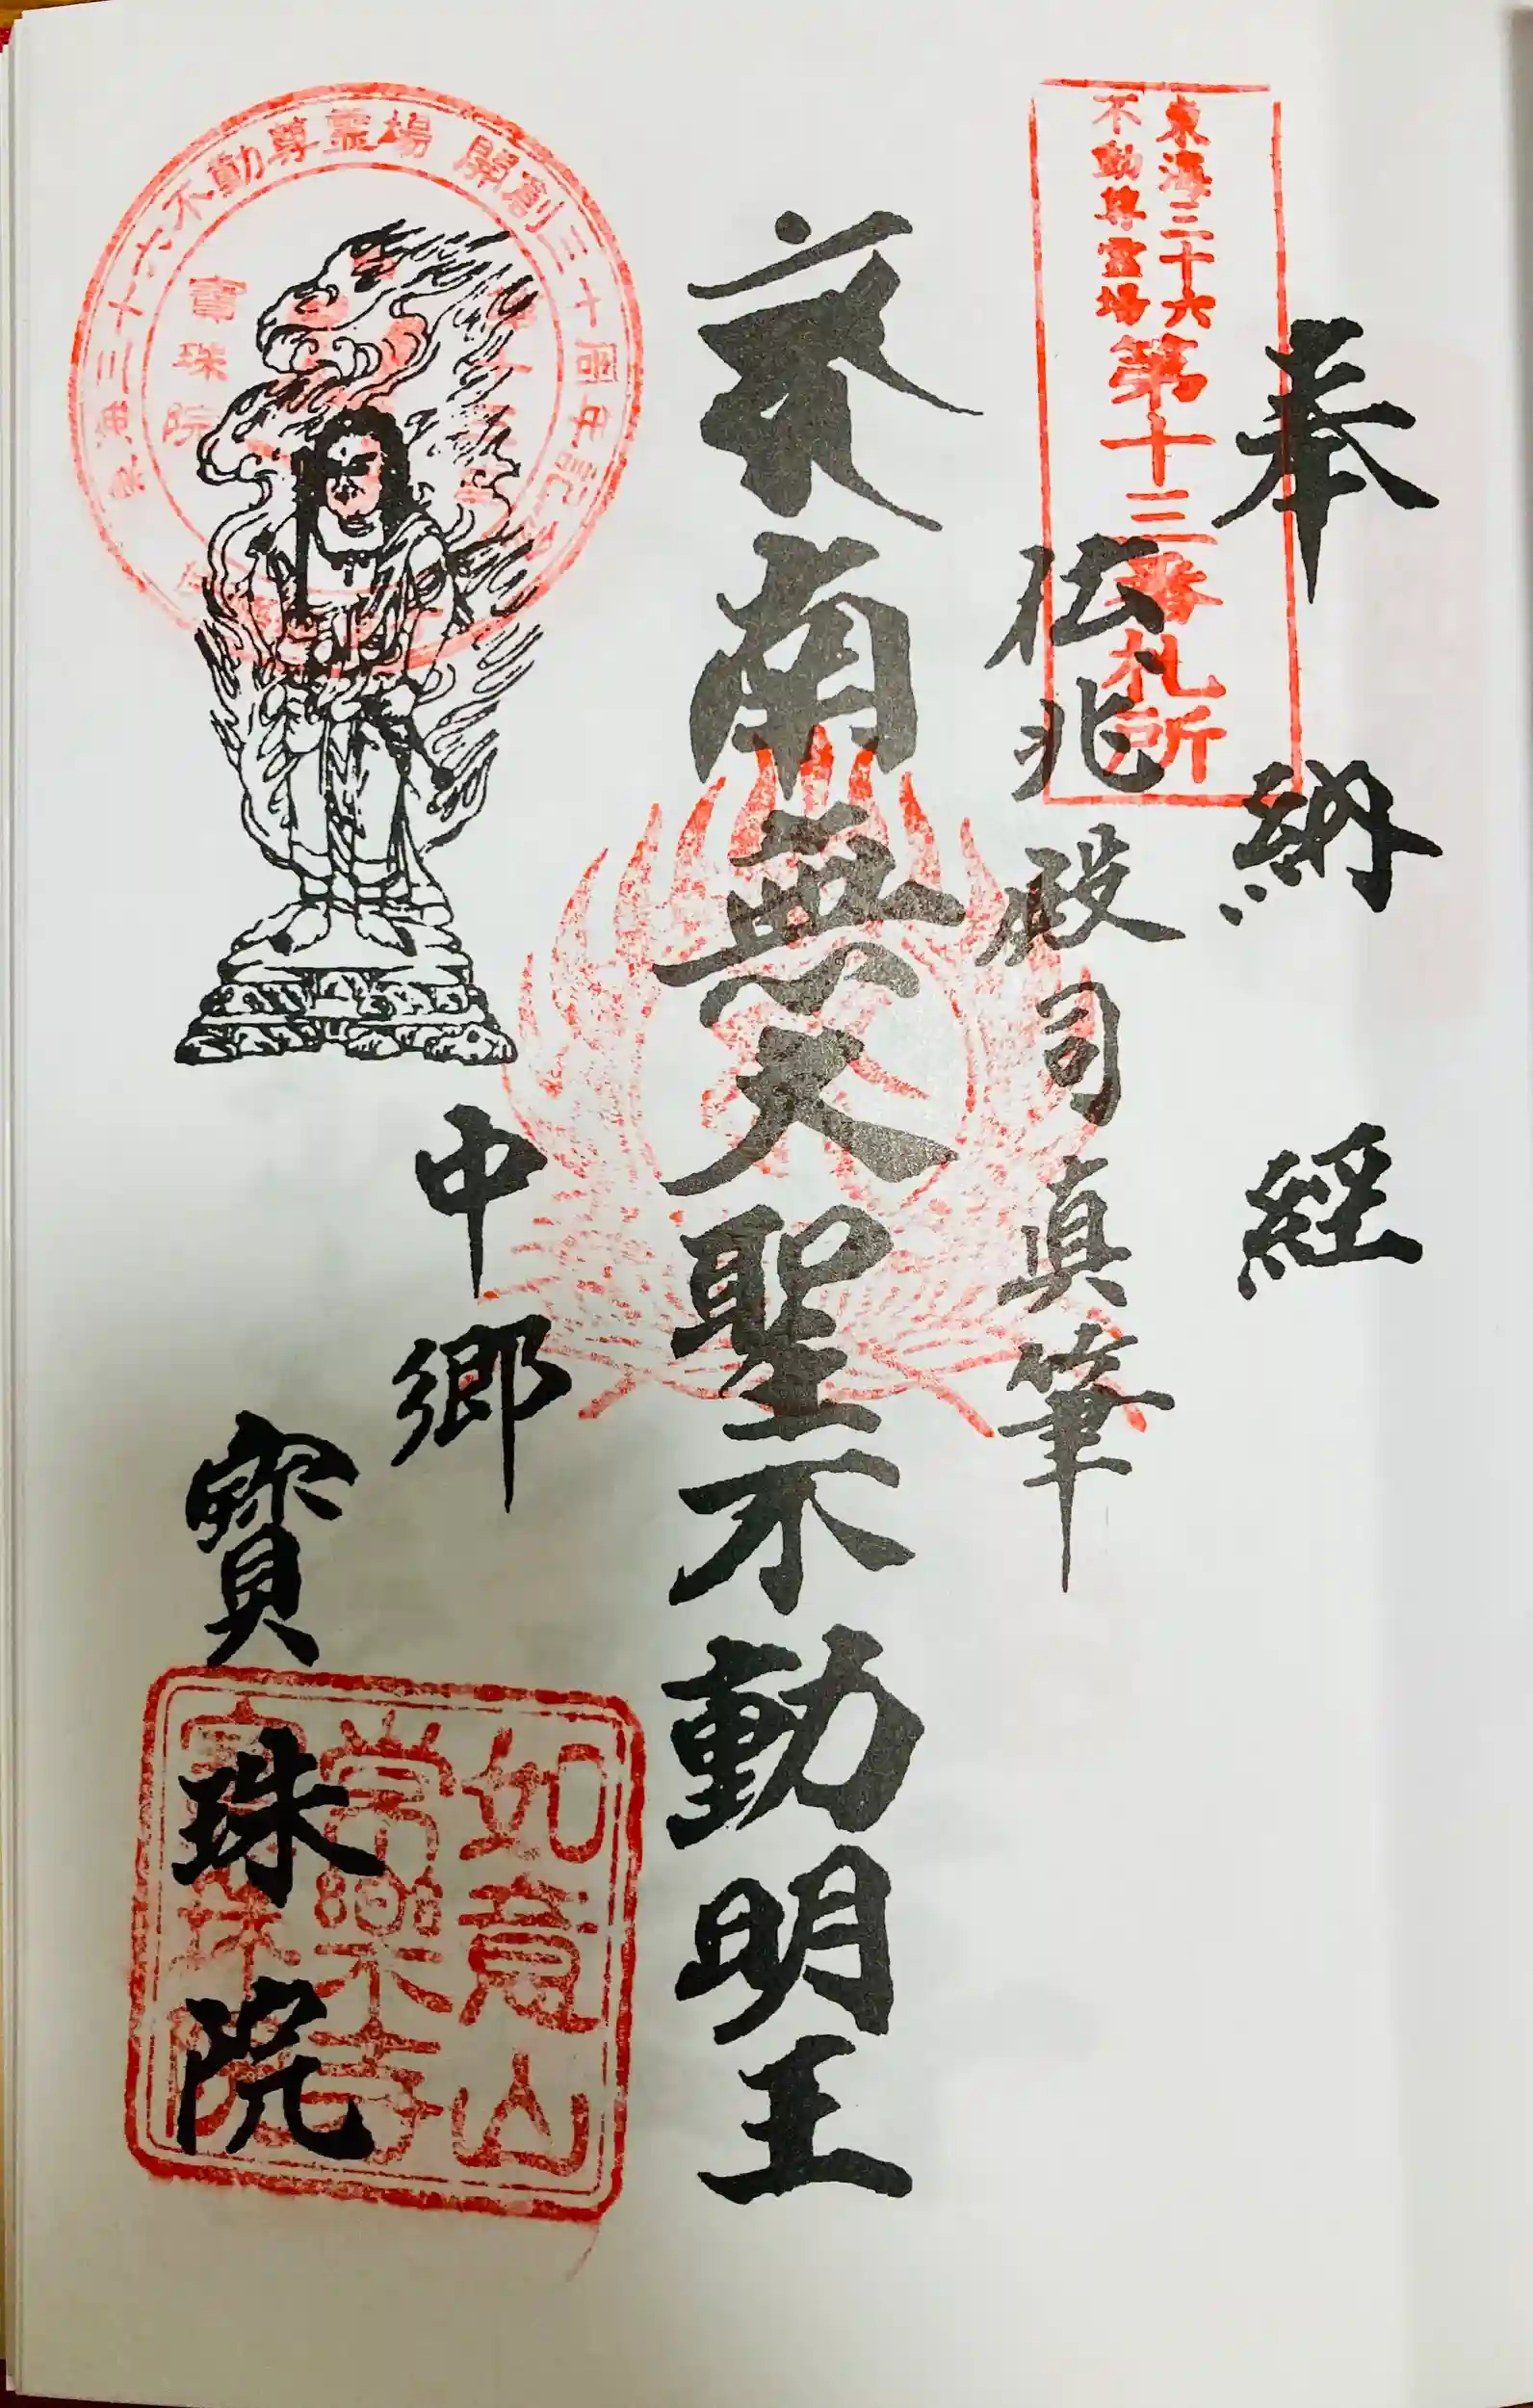 奉納経
東海三十六
不動尊霊場
第十三番札所
伝兆殿司真筆
南無大聖不動明王
中郷
寳珠院
東海三十六不動尊霊場 開創三十周年記念
寶珠院
如意山
常樂寺
寶珠院